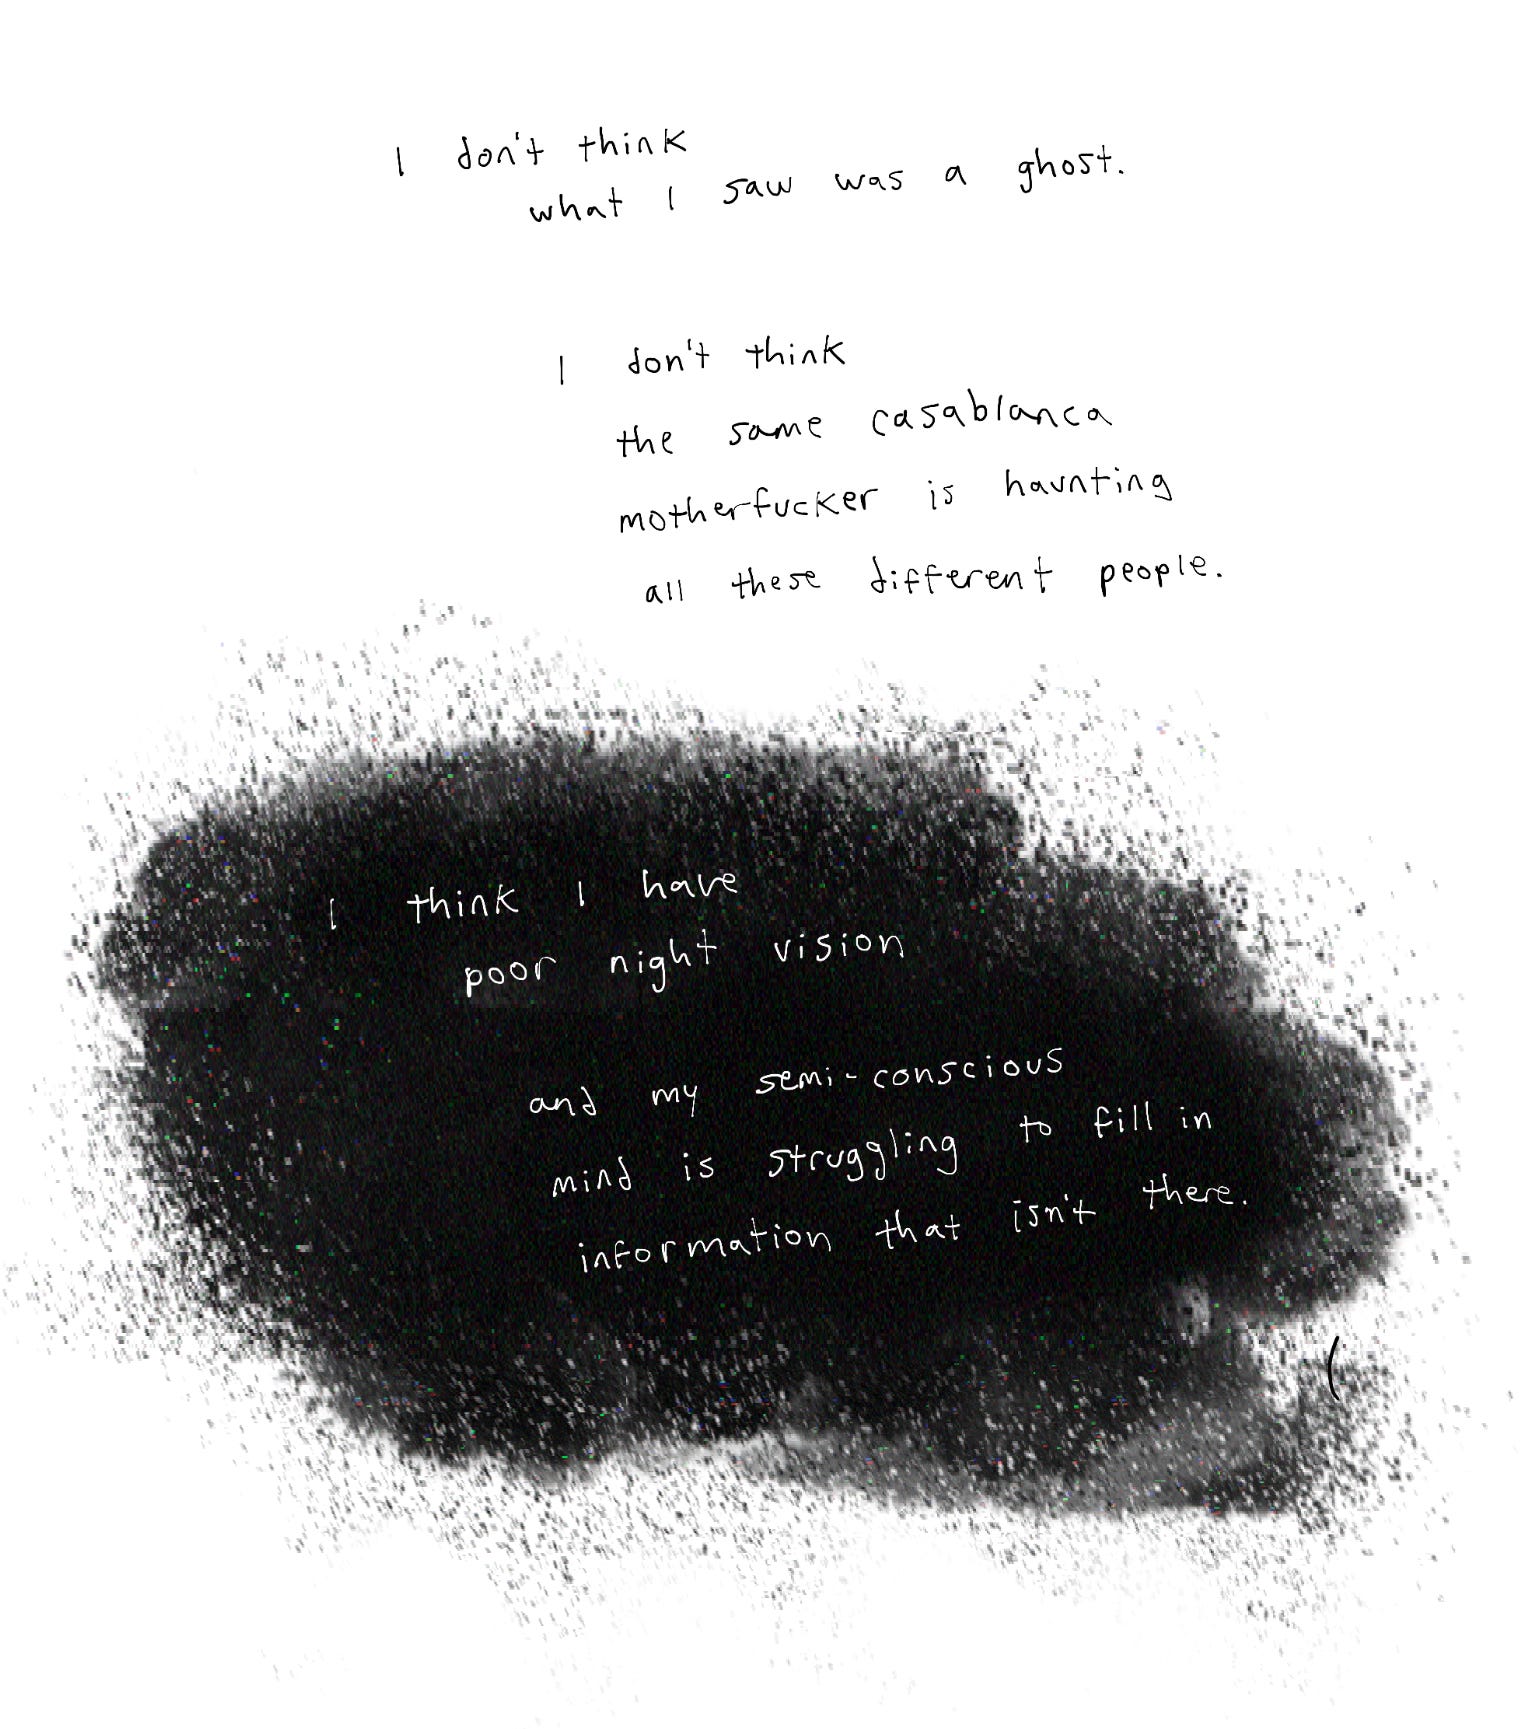 I don't think
what I saw was a ghost.
I don't think
the same casablanca
motherfucker is haunting
all these different people.
I think I have
poor night vision
and my semi-conscious
mind is struggling to fill in
information that isn't there.
(